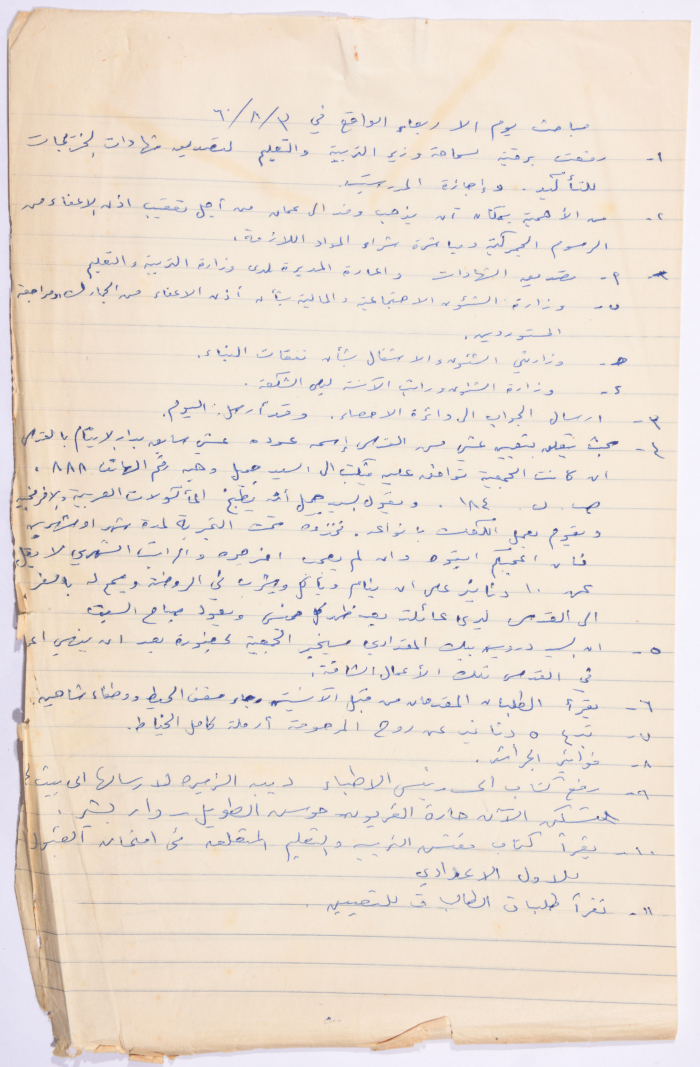 مباحث يوم الاربعاء الواقع في ٣/٨/٦٠
١- رفعت برقية لسماحة وزير التربية والتعليم لتصديق شهادات الخريجات
للتأكيد. وإجازة المدرسية.
٢- من الأهمية بمكان أن يذهب وفد الى عمان من أجل تعقيب اذن الاعفاء من
الرسوم الجمركية ومباشرة شراء المواد اللازمة.
٢- تصديق الشهادات واعارة المديرة لدى وزارة التربية والتعليم
ب- وزارة الشؤون الاجتماعية والمالية بشأن أذن الاعفاء من الجمارك ومراجعة
المستوردين.
ح- وزارتي الشئون والاشغال بشأن نفقات البناء.
ء- وزارة الشئون وراتب الآنسة ليلى
٣- ارسال الجواب الى دائرة الاحصاء. وقد أرسل اليوم.
٤- بحث يتعلق بتعيين عشي من القدس إسمه عوده عشي سابق بدار الايتام بالقدس
ان كانت الجمعية توافق عليه يكتب الى السيد جميل وهبه رقم الهاتف ٨٨٨.
ص. ب. ١٨٤. ويقول السيد جميل أنه يطبخ المأكولات العربية والافرنجية
ويقوم بعمل الكعك بانواعه. تحت التجربة لمدة شهر او شهرين
فان اعجبكم ابقوه وان لم يعجب اصرفوه والراتب الشهري لا يقل
عن ١٠ دنانير على ان ينام ويأكل ويشرب في الروضة ويسمح له بالسفر
الى القدس ليرى عائلته بعد ظهر كل خميس ويعود صباح السبت
٥- ان السيد درويش بيك المقدادي سيخبر الجمعية بحضوره بعد ان ينهي
في القدس تلك الأعمال الشاقة.
٦- يقرأ الطلبان المقدمان من قبل الآنستين رجاء ووطفاء شاهين.
٧- تبرع ٥ دنانير عن روح المرحومة أرملة كامل الخياط.
٨- فواتير الجرائد.
٩- رفع كتاب الى رئيس الاطباء ديبه الزميره لارسالها الى بيت
تسكن الآن حارة القريون حوش الطويل
١٠- يقرأ كتاب مفتش التربية والتعليم المتعلقه في امتحان القبول
للاول الاعدادي
١١- تقرأ طلبات الطالبات للتعيين.